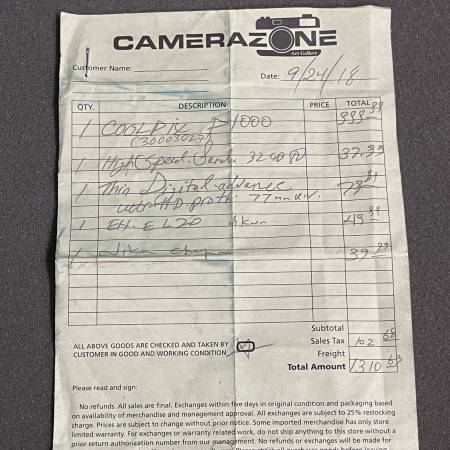 CAMERAZONE
Art Gallery
Customer Name:
Date: 9/24/18
QTY. DESCRIPTION PRICE TOTAL
1 COOLPIX P1000 999 99
(30003027)
1 High Speed 32 GB 37.99
1 Thin Digital advance 79
ultra HD. prot. 77mm U.V.
1 EN. EL20 49 99
1 Nikon 39 99
Subtotal
ALL ABOVE GOODS ARE CHECKED AND TAKEN BY Sales Tax 102 68
CUSTOMER IN GOOD AND WORKING CONDITION
Freight
Total Amount 1310 63
Please read and sign:
No refunds. All sales are final. Exchanges within five days in original condition and packaging based
on availability of merchandise and management approval. All exchanges are subject to 25% restocking
charge. Prices are subject to change without prior notice. Some imported merchandise has only store
limited warranty. For exchanges or warranty related work, do not ship anything to this store without a
prior return authorization number from our management. No refunds or exchanges will be made for